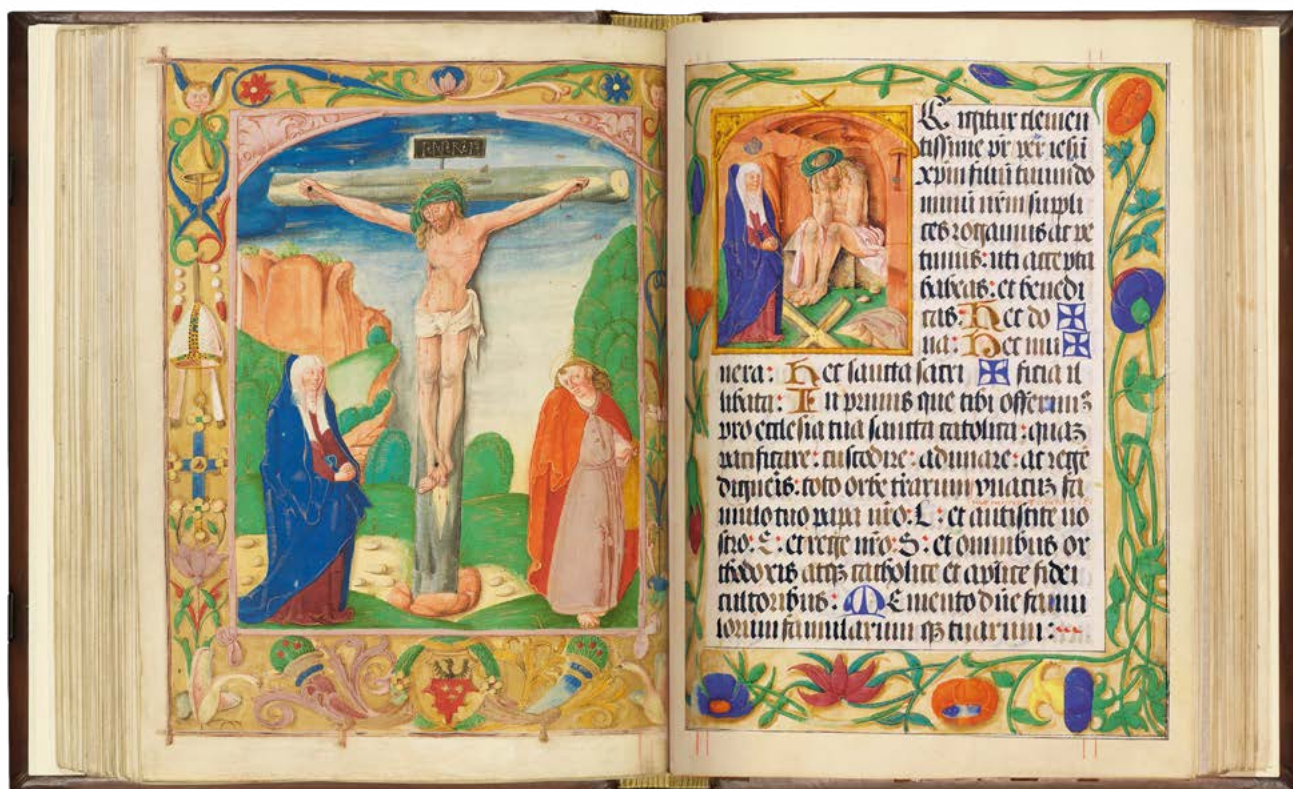 E igitur clemen
tissime pr̄ per iesū
xp̄m filiū tuum do
minū nr̄m suppli
ces rogamus ac pe
timus: uti accepta
habeas: et benedi
cas: Hec do ✠
na: Hec mu ✠
nera: Hec sancta sacri ✠ ficia il
libata: In primis que tibi offerimꝰ
pro ecclesia tua sancta catolica: quaz
pacificare: custodire: adunare: ac rege
digneris: toto orbe tr̄arum vnacuz fa
mulo tuo papa nr̄o: et antistite no
stro: et rege nr̄o: S: et omnibus or
thodoxis atqz catholice et aplice fidei
cultoribus: Memento dn̄e famu
lorum famularum qz tuarum: